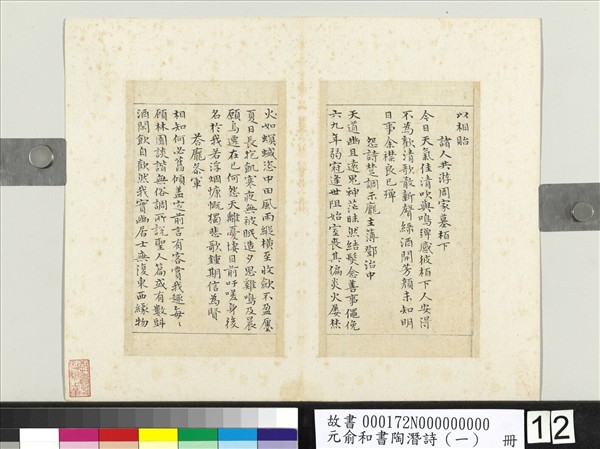 以相貽
諸人共游周家墓栢下
今日天氣佳清吹與鳴彈感彼栢下人安得
不為歡清歌散新聲綠酒開芳顏未知明
日事余襟良已殫
怨詩楚調示龐主薄鄧治中
天道幽且遠鬼神茫昧然結髮念善事僶俛
六九年弱冠逢世阻始室喪其偏炎火屢焚
火如螟蜮恣中田風雨縱橫至收斂不盈廛
夏日長抱飢寒夜無被眠造夕思雞鳴及晨
願烏遷在己何怨天離憂悽目前吁嗟身後
名於我若浮烟慷慨獨悲歌鍾期信為賢
答龐參軍
相知何必舊傾蓋定前言有客賞我趣每〻
顧林園談諧無俗調所說聖人篇或有數斟
酒閒飲自歡然我實幽居士無復東西緣物
故書 000172N000000000
元俞和書陶潛詩(一) 冊
12